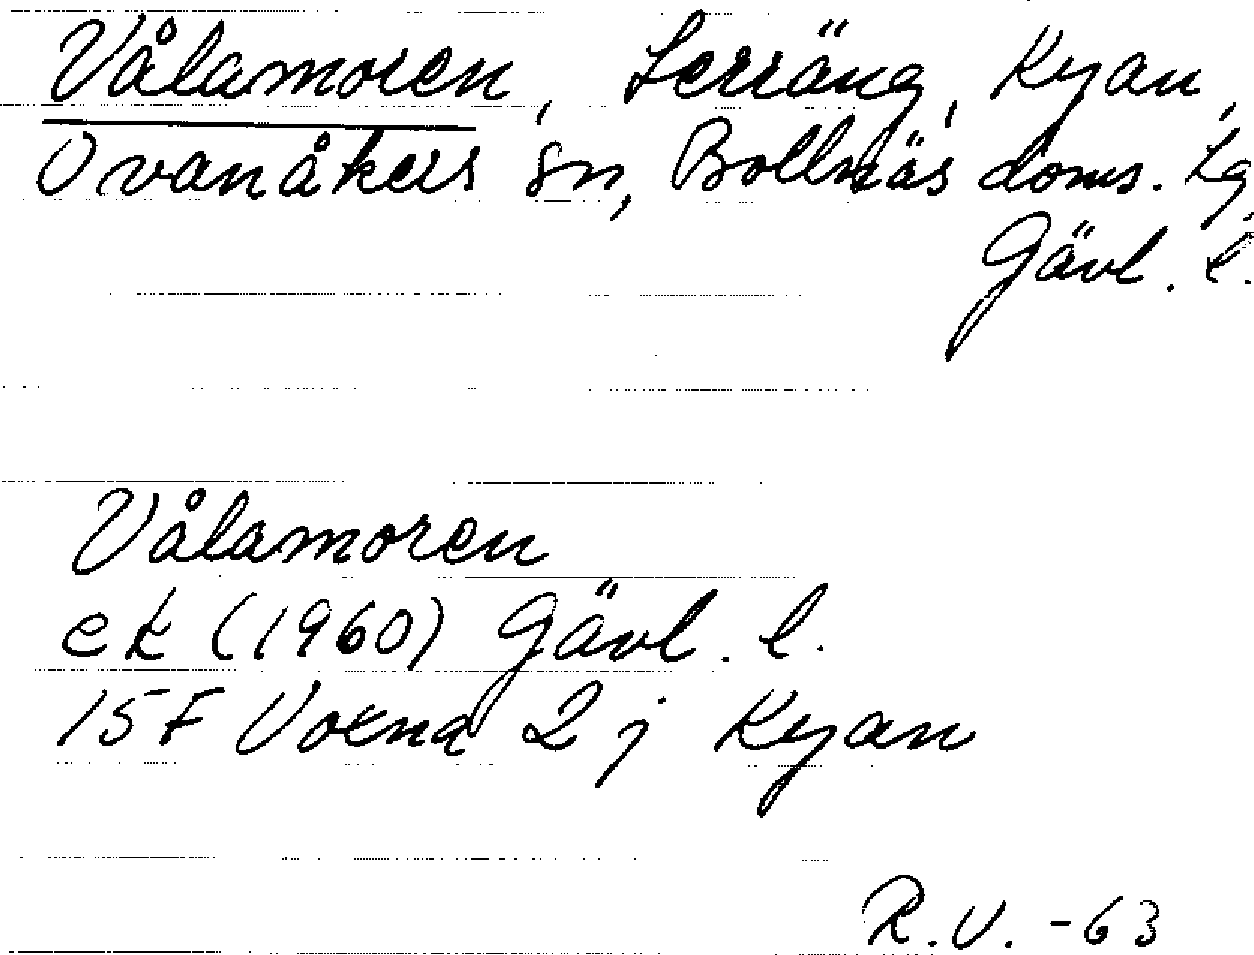 Vålamoren, terräng, Kyan,
Ovanåkers sn, Bollnäs doms. tg
Gävl. l.
Vålamoren
ek (1960) Gävl. l.
15F Voxna 2j Kyan
R.V. -63